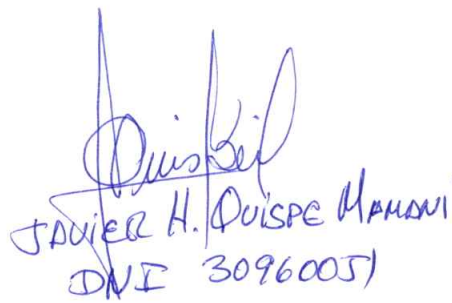 JAVIER H. QUISPE MAMANI
DNI 30960051